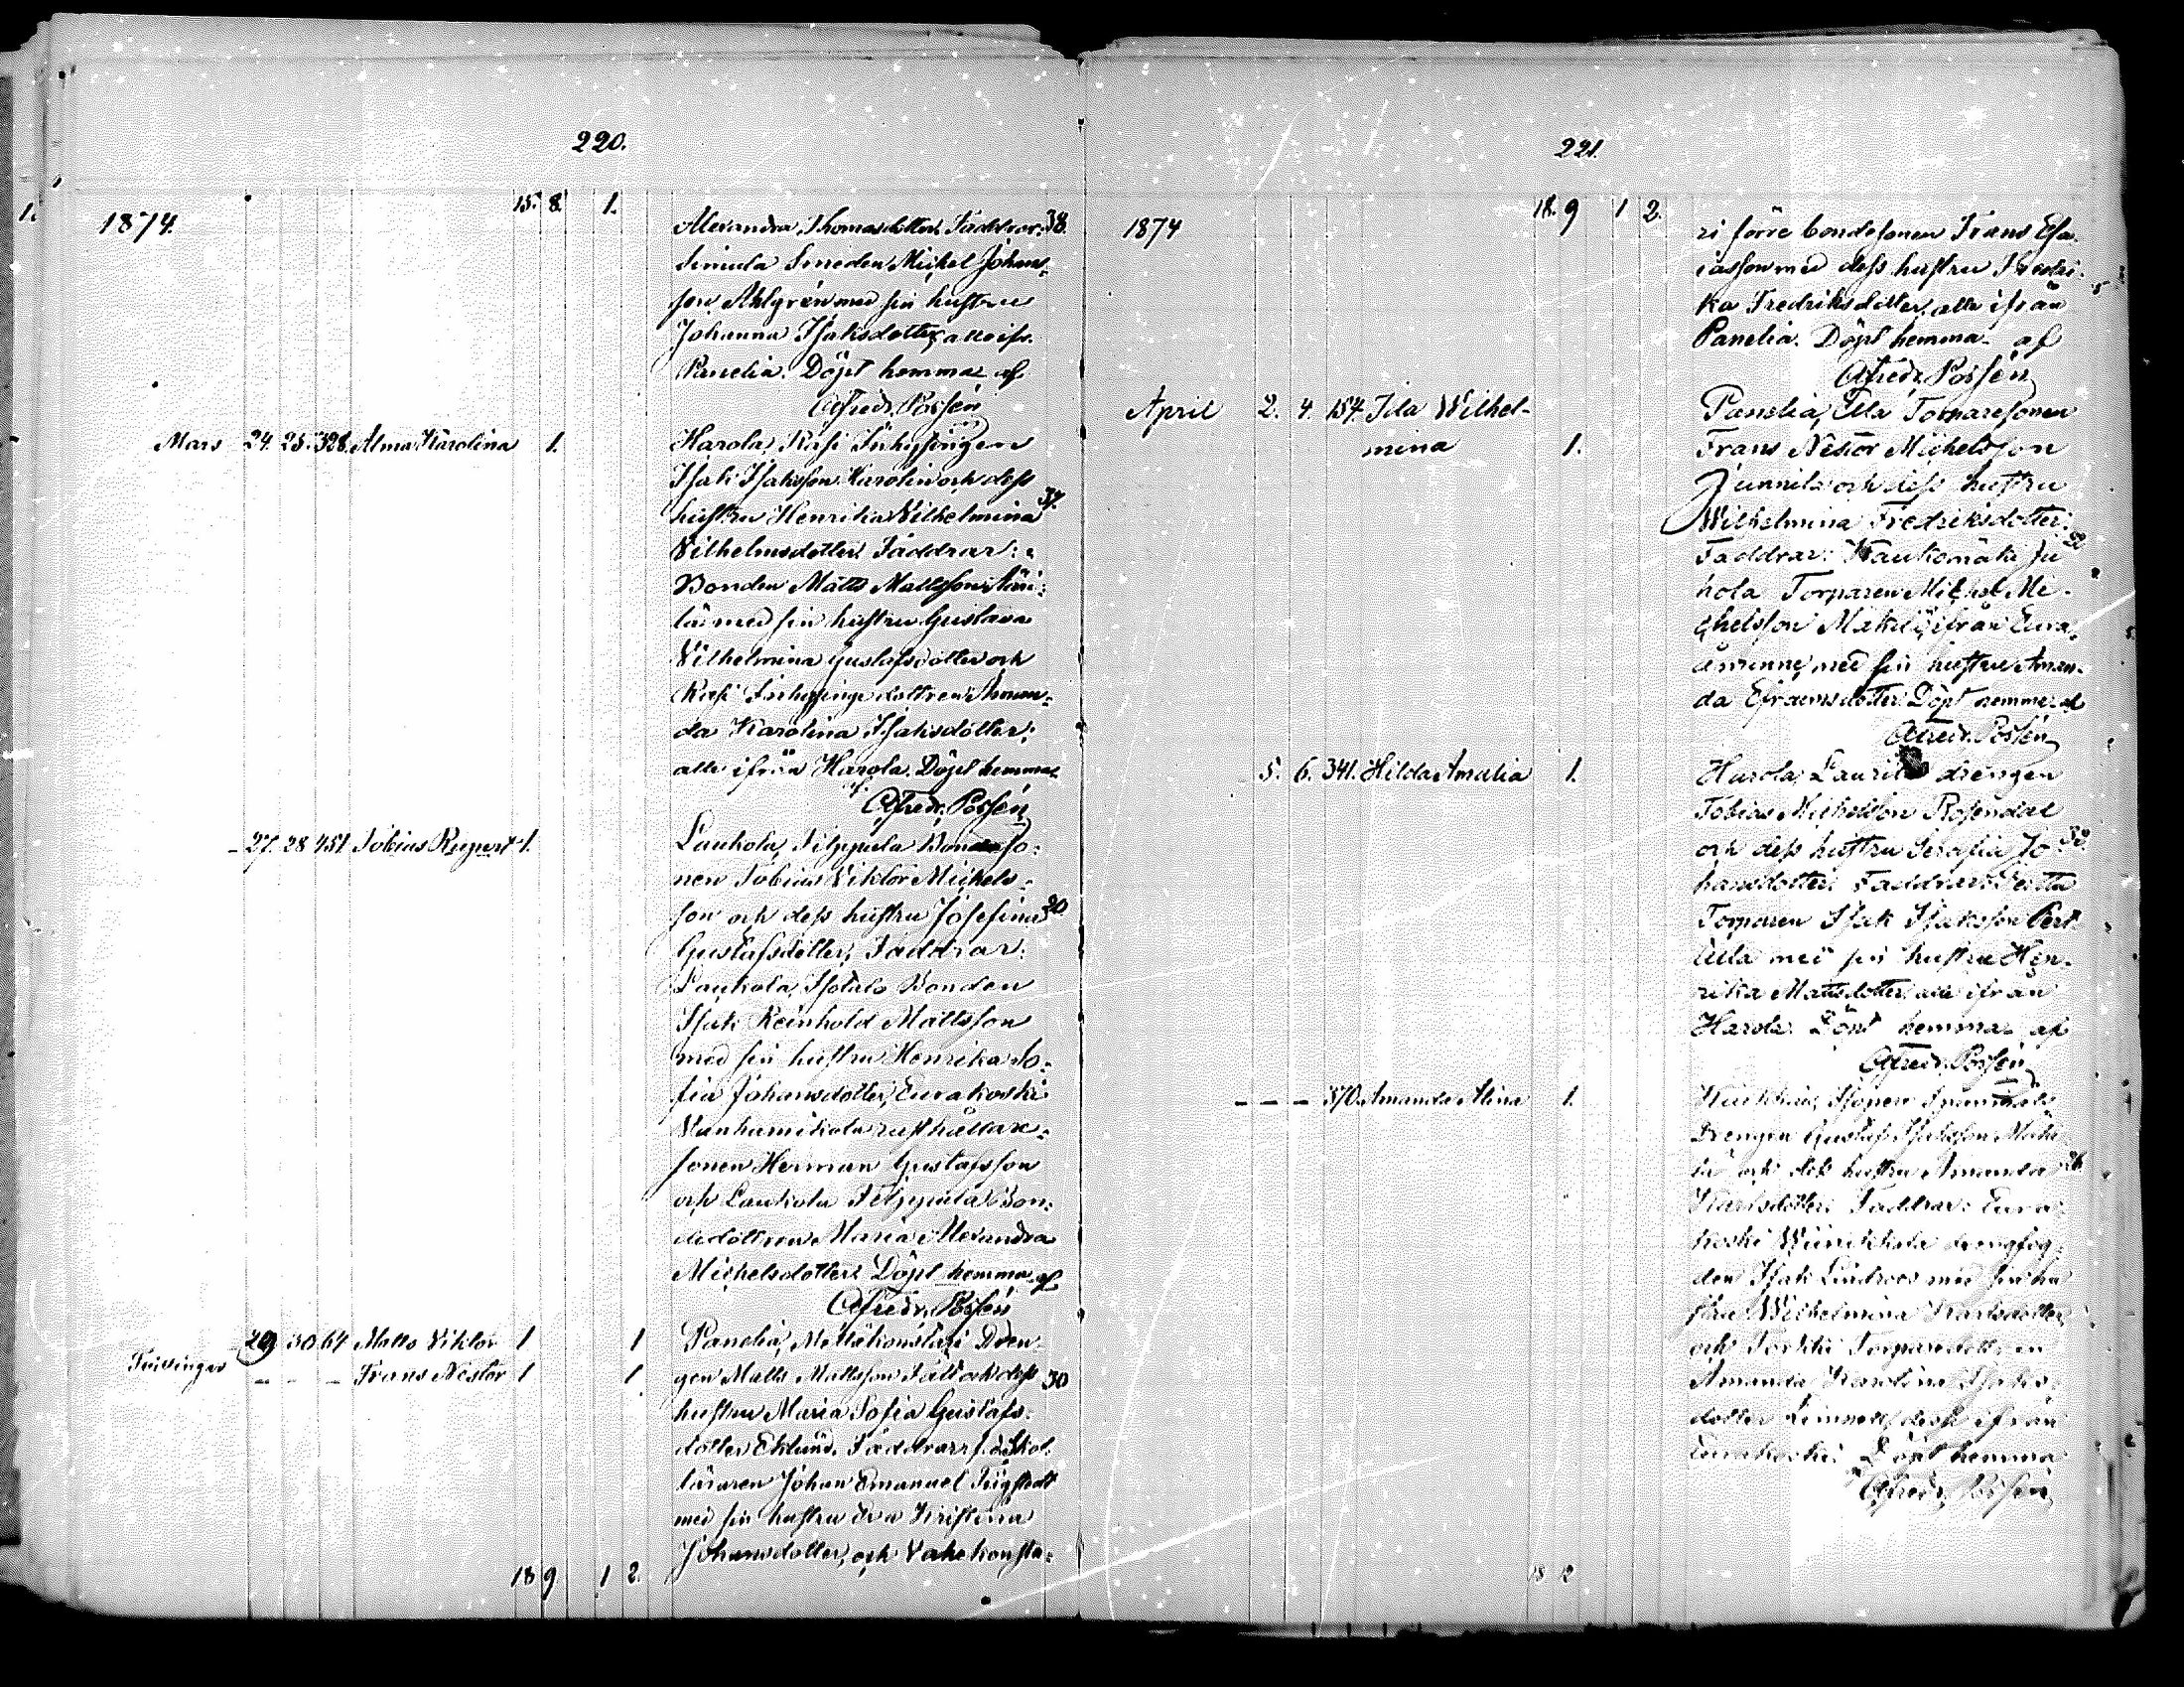 220.
15. 8. 1.
1874. Alexandra Thomasdotter. Faddrar: 38.
Simula Smeden Mickel Johans-
son Ahlgrén med sin hustru
Johanna Isaksdotter, alla ifr.
Panelia. Döpt hemma af
Alfredr. Possén
Mars 24. 25. 328. Alma Karolina 1. Harola, Kasi Inhysingen
Isak Isaksson Karolin och dess
hustru Henrika Vilhelmina 37.
Vilhelmsdotter. Faddrar:
Bonden Matts Mattsson
lä med sin hustru Gustava
Vilhelmina Gustafsdotter och
Kasi Inhysinge dottren Aman-
da Karolina Isaksdotter,
alla ifrån Harola. Döpt hemma
af Alfredr. Possén
- 27. 28 451 Tobias Rupert 1. Laukola, Filppula Bondeso-
nen Tobias Viktor Michels-
son och dess hustru Josefina 20
Gustafsdotter, Faddrar:
Laukola, Isotalo Bonden
Isak Reinhold Mattsson
med sin hustru Henrika So-
fia Johansdotter, Eurakoski
Vanhamikola rusthållare-
sonen Herman Gustafsson
och Laukola Filppula Bon-
dedottren Maria Alexandra
Michelsdotter. Döpt hemma af
Alfredr. Possén
29 30 64 Matts Viktor 1 1 Panelia, Drän-
Tvillingar - - - Frans Nestor 1 1 gen Matts Mattsson Fält och dess 30
hustru Maria Sofia Gustafs-
dotter Eklund. Faddrar: f.d. Skol-
läraren Johan Emanuel
med sin hustru Eva Kristina
Johansdotter, och
18 9 1 2.
221.
18. 9 1 2.
1874 ri förre bondesonen Frans Esa-
iasson med dess hustru Fredri- 5
ka Fredriksdotter, alla ifrån
Panelia. Döpt hemma af
Alfredr. Possén
April 2. 4. 154. Ida Wilhel- Panelia, Torparesonen
mina 1. Frans Nestor Michelsson
Junnila och dess hustru
Wilhelmina Fredriksdotter.
Faddrar: Kaukomäki Ju
hola Torparen Michel Mi-
chelsson Mäkilä ifrån Eura-
åminne, med sin hustru Aman-
da Efraimsdotter. Döpt hemma af
Alfredr. Possén
5. 6. 341. Hilda Amalia 1. Harola, Laurila drengen
Tobias Michelsson Rosendal
och dess hustru Serafia Jo-
hansdotter. Faddrar:
Torparen Isak Isaksson Pert
tilla med sin hustru Hen-
rika Mattsdotter, alla ifrån
Harola. Döpt hemma af
Alfredr. Possén
- - - 370. Amanda Alina 1.
Drengen Gustaf Isaksson Mäki
lä och dess hustru Amanda 26
Karlsdotter. Faddrar: Eura-
koski drengfog-
den Isak Lindroos med sin hu
stru Wilhelmina Karlsdotter
och Torparedottren
Amanda Karolina Isaks-
dotter ifrån
Eurakoski. Döpt hemma
af Alfredr. Possén
18 12